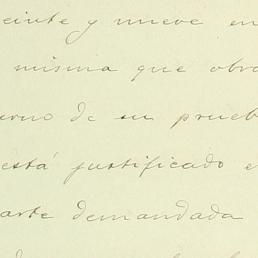 veinte y nueve en
misma que obra
erno de su prueb
está justificado e
arte demandada